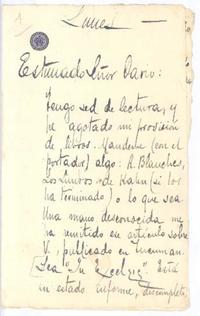 1
Lunes —
Estimado Señor Dario:
Tengo sed de lectura, y
he agotado mi provision
de libros. Mandeme (con el
portador) algo: A. Blanches,
los de Kahn (si los
ha terminado) o lo que sea
Una mano desconocida me
ha remitido un articulo sobre
V. publicado en Tucuman.
Lea "In Excelsis" Está
en estado informe, incompleto,